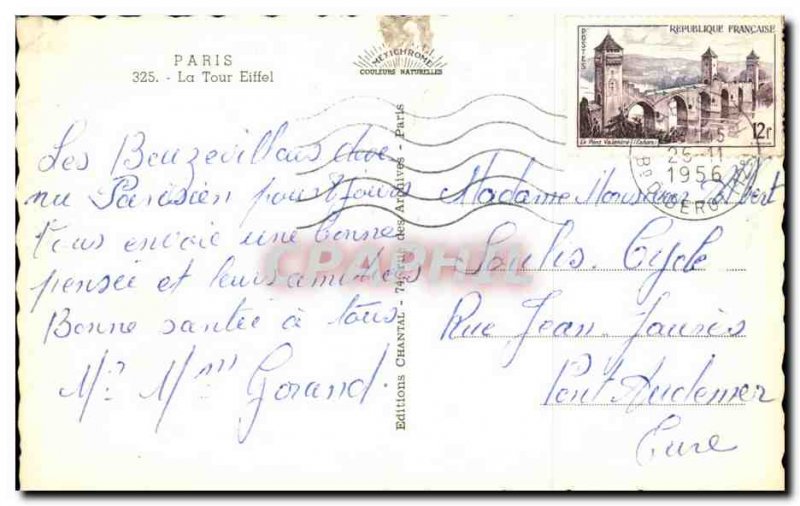 PARIS
325. - La Tour Eiffel
MEXICHROME
COULEURS NATURELLES
REPUBLIQUE FRANÇAISE
POSTES
12F
Le Pont Valentré (Cahors)
26-11
1956
Les Beuzevillais deve
nu Parisien pour 8 jours
Vous envoie une bonne
pensée et leurs amitiées
Bonne santée à tous
Mr Mme Gorand.
Editions CHANTAL - 74, rue des Archives - Paris
Madame Monsieur Albert
Soulis. Cycle
Rue Jean Jaurès
Pont Audemer
Eure
CPARPHIL